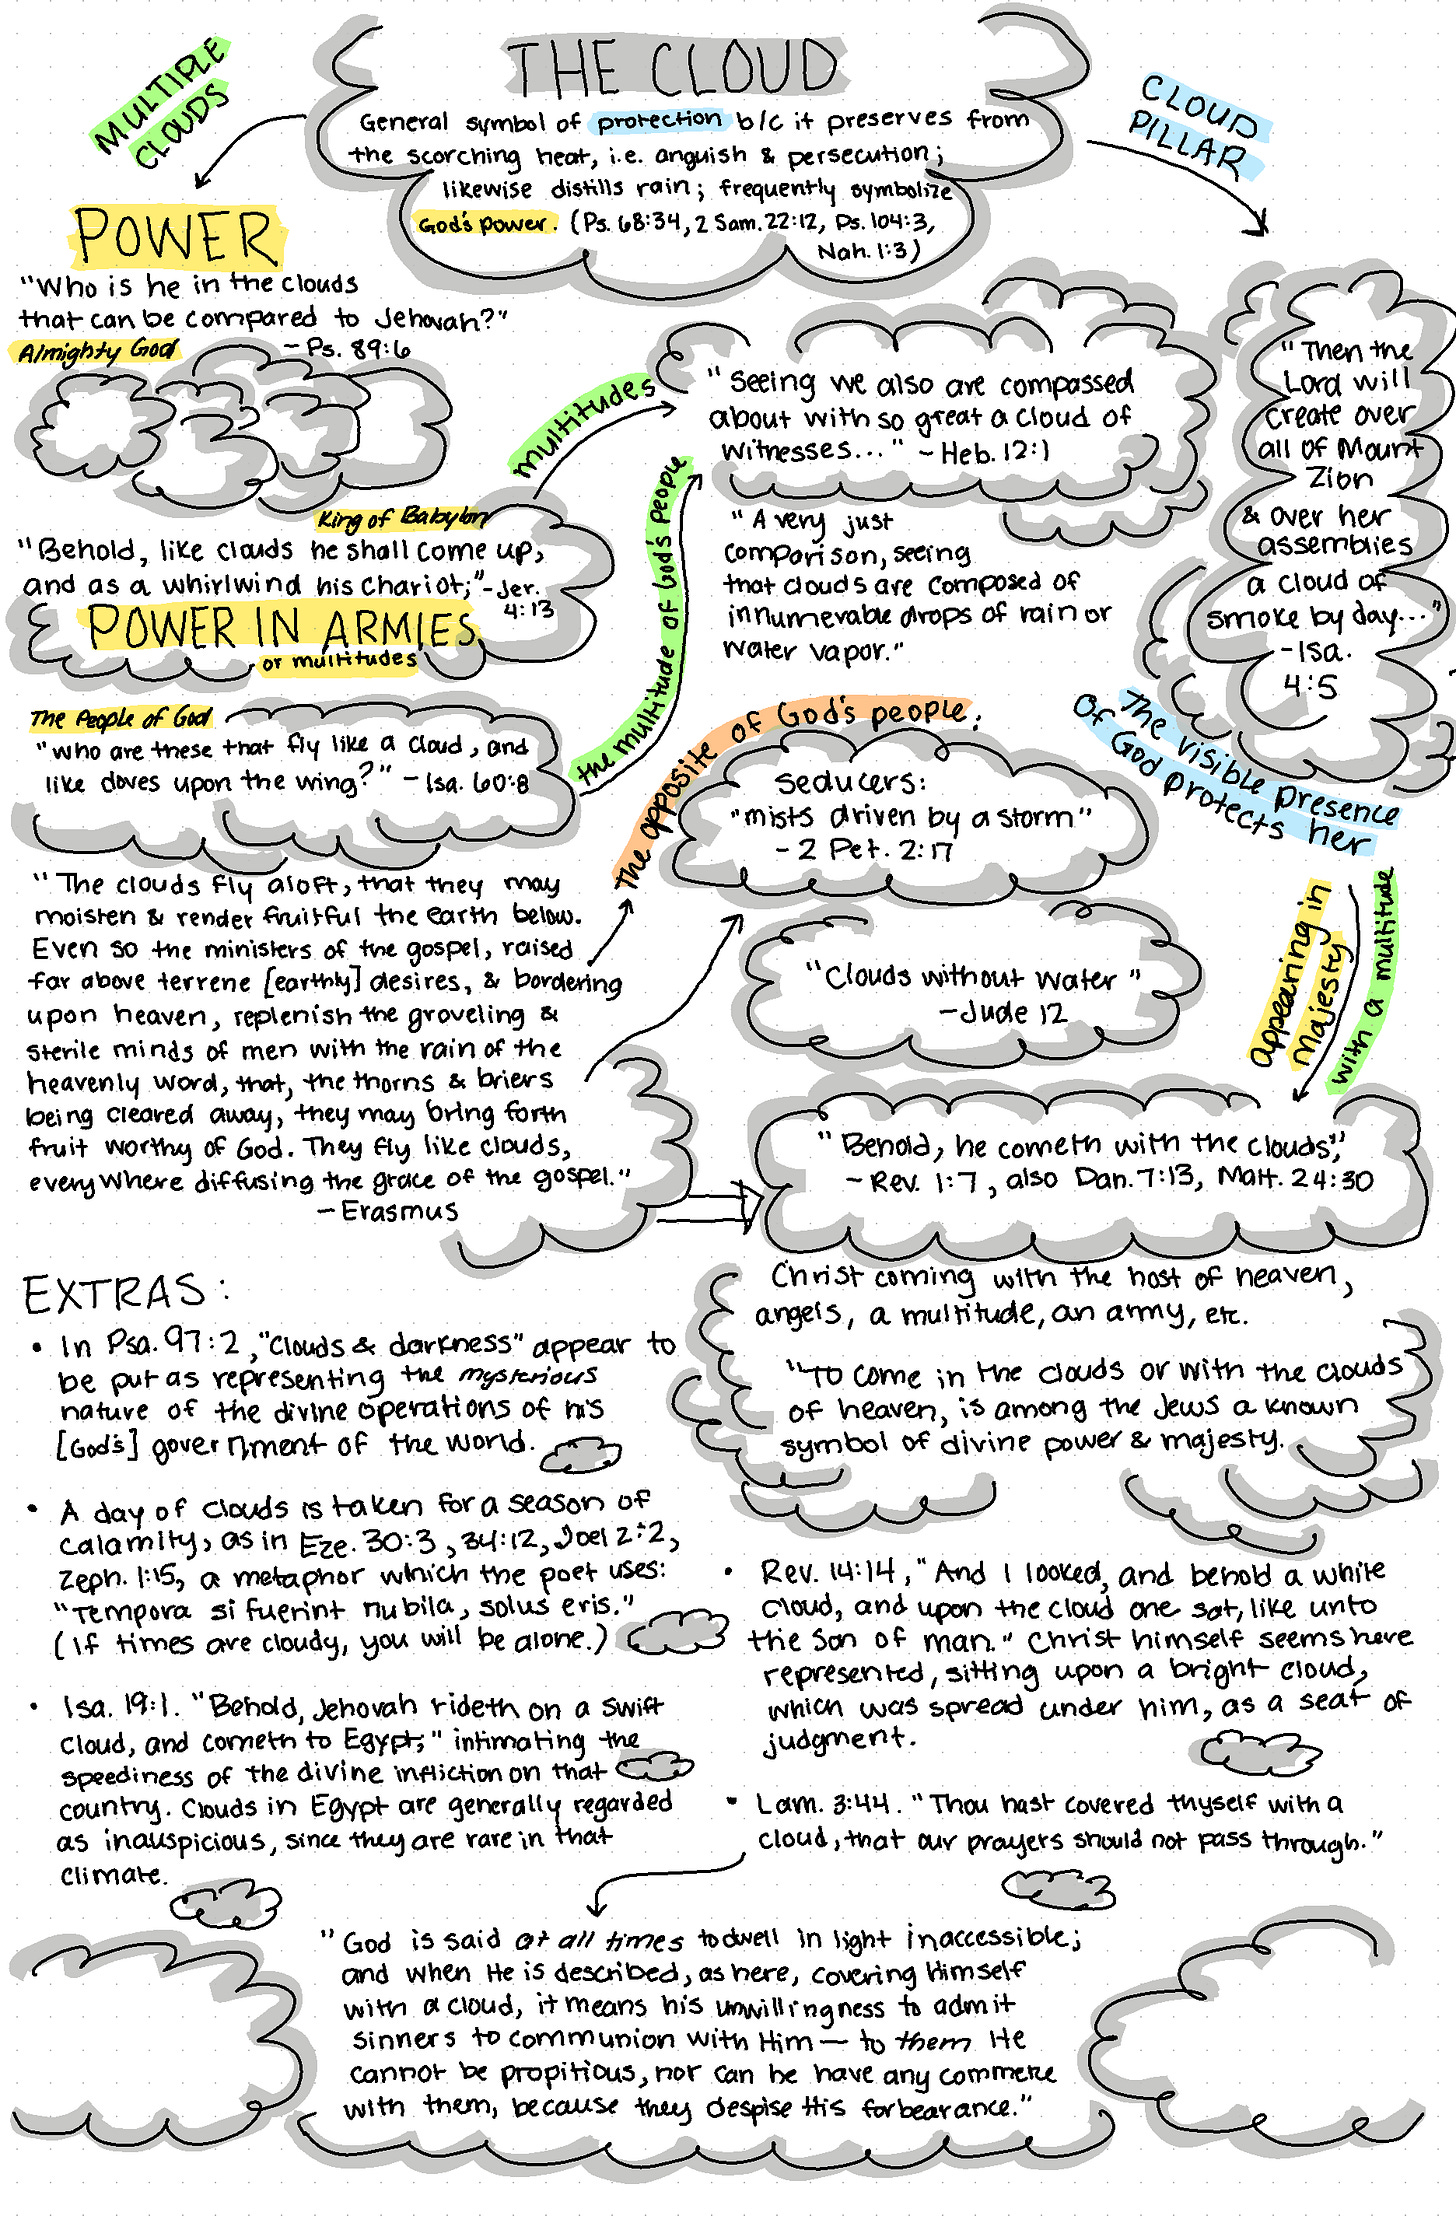 THE CLOUD
General symbol of protection b/c it preserves from
the scorching heat, i.e. anguish & persecution;
likewise distills rain; frequently symbolize
God's power. (Ps. 68:34, 2 Sam. 22:12, Ps. 104:3,
Nah. 1:3)
MULTIPLE
CLOUDS
CLOUD
PILLAR
POWER
"Who is he in the clouds
that can be compared to Jehovah?"
Almighty God
- Ps. 89:6
King of Babylon
"Behold, like clouds he shall come up,
and as a whirlwind his chariot;" - Jer.
4:13
POWER IN ARMIES
or multitudes
The People of God
"who are these that fly like a cloud, and
like doves upon the wing?" - Isa. 60:8
"The clouds fly aloft, that they may
moisten & render fruitful the earth below.
Even so the ministers of the gospel, raised
far above terrene [earthly] desires, & bordering
upon heaven, replenish the groveling &
sterile minds of men with the rain of the
heavenly word, that, the thorns & briers
being cleared away, they may bring forth
fruit worthy of God. They fly like clouds,
everywhere diffusing the grace of the gospel."
- Erasmus
multitudes
the multitude of God's people
"Seeing we also are compassed
about with so great a cloud of
witnesses..." - Heb. 12:1
"A very just
comparison, seeing
that clouds are composed of
innumerable drops of rain or
water vapor."
The opposite of God's people:
seducers:
"mists driven by a storm"
- 2 Pet. 2:17
"Clouds without water"
- Jude 12
"Then the
Lord will
create over
all of Mount
Zion
& over her
assemblies
a cloud of
smoke by day..."
- Isa.
4:5
The visible presence
Of God protects her
appearing in
majesty
with a multitude
"Behold, he cometh with the clouds",
- Rev. 1:7, also Dan. 7:13, Matt. 24:30
Christ coming with the host of heaven,
angels, a multitude, an army, etc.
"To come in the clouds or with the clouds
of heaven, is among the Jews a known
symbol of divine power & majesty.
EXTRAS:
• In Psa. 97:2, "Clouds & darkness" appear to
be put as representing the mysterious
nature of the divine operations of his
[God's] government of the world.
• A day of clouds is taken for a season of
calamity, as in Eze. 30:3, 34:12, Joel 2:2,
Zeph. 1:15, a metaphor which the poet uses:
"Tempora si fuerint nubila, solus eris."
(If times are cloudy, you will be alone.)
• Isa. 19:1. "Behold, Jehovah rideth on a swift
cloud, and cometh to Egypt;" intimating the
speediness of the divine infliction on that
country. Clouds in Egypt are generally regarded
as inauspicious, since they are rare in that
climate.
• Rev. 14:14, "And I looked, and behold a white
cloud, and upon the cloud one sat, like unto
the Son of man." Christ himself seems here
represented, sitting upon a bright cloud,
which was spread under him, as a seat of
judgment.
• Lam. 3:44. "Thou hast covered thyself with a
cloud, that our prayers should not pass through."
"God is said at all times to dwell in light inaccessible;
and when He is described, as here, covering Himself
with a cloud, it means his unwillingness to admit
sinners to communion with Him — to them He
cannot be propitious, nor can he have any commerce
with them, because they despise His forbearance."